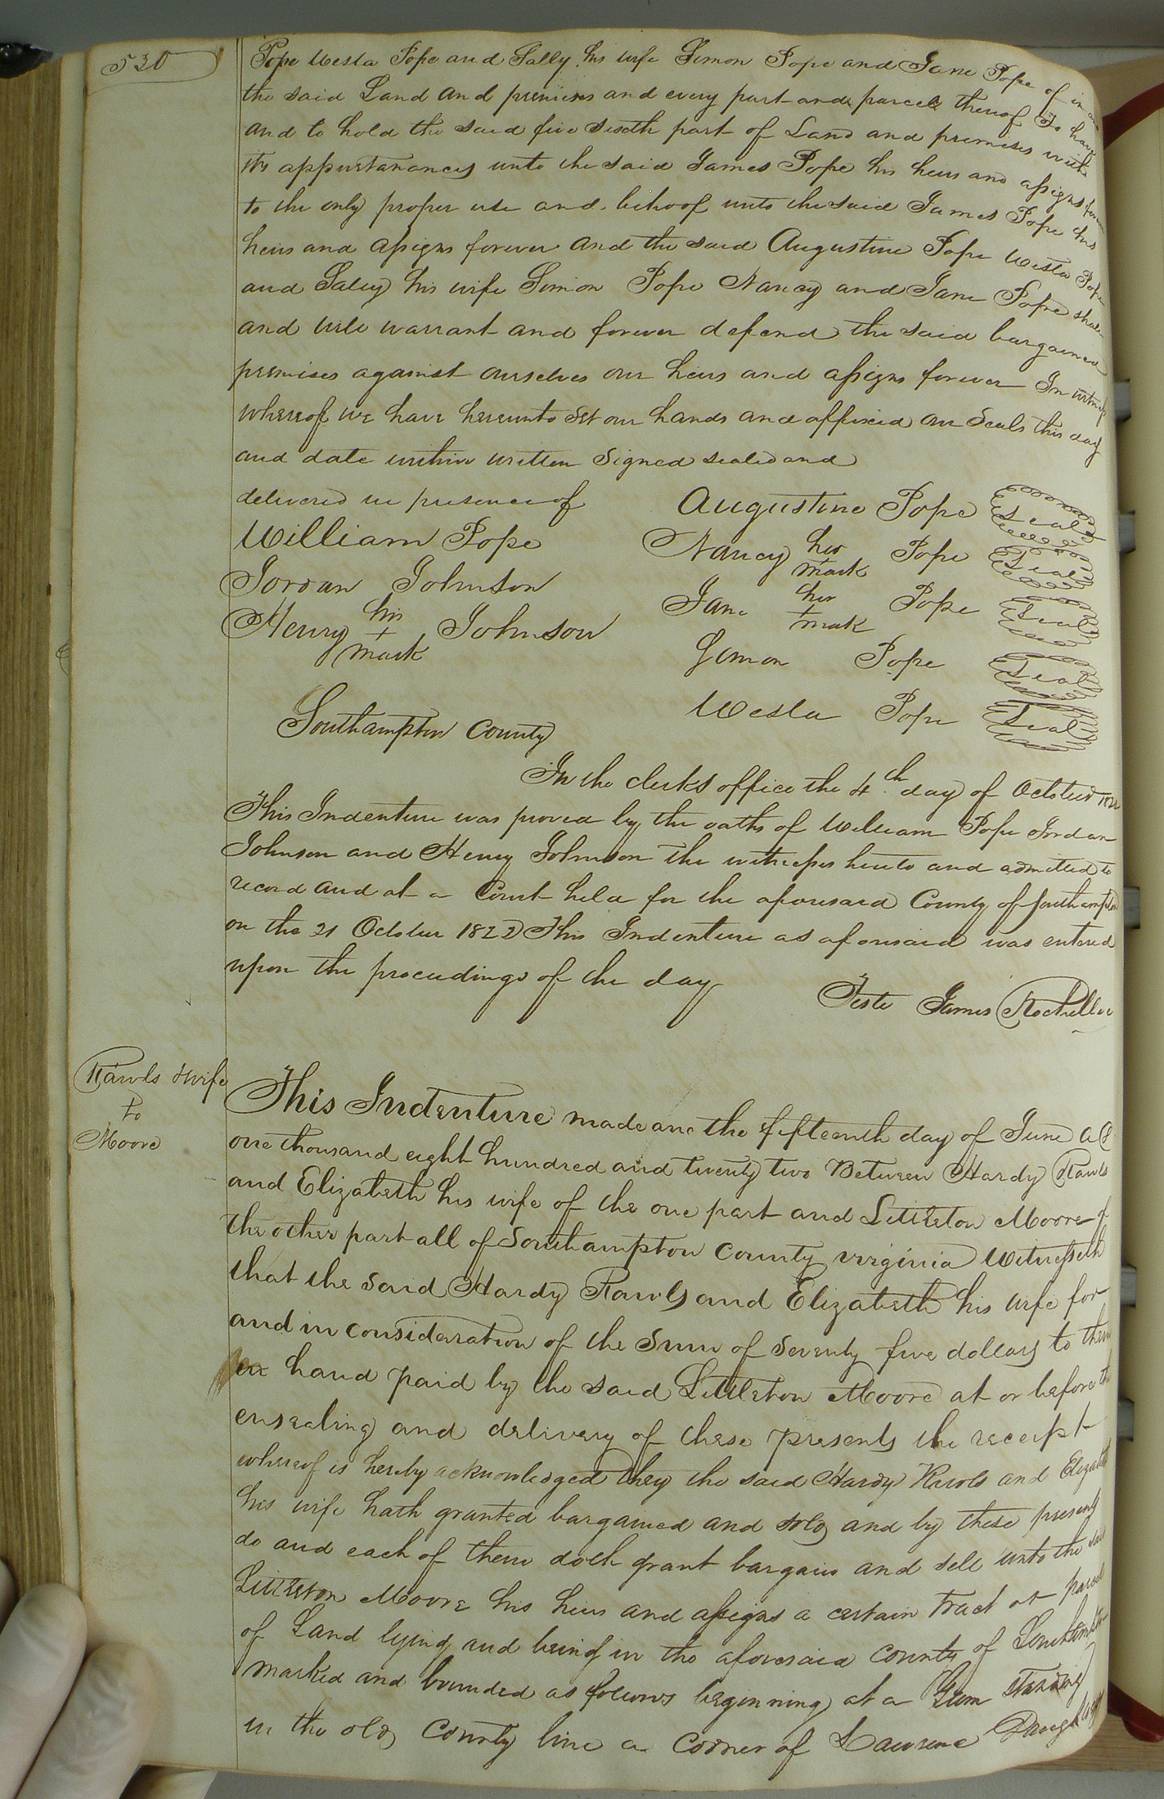 530
Pope Wesla Pope and Sally his wife Simon Pope and Jane Pope of in
the said Land and premises and every part and parcel thereof To have
and to hold the said five sixth part of Land and premises with
the appurtanances unto the said James Pope his heirs and assigns
to the only proper use and behoof unto the said James Pope his
heirs and assigns forever and the said Augustine Pope Wesla Pope
and Salley his wife Simon Pope Nancy and Jane Pope shall
and will warrant and forever defend the said bargained
premises against ourselves our heirs and assigns forever In witness
whereof we have hereunto set our hands and affixed our Seals this day
and date within written Signed sealed and
delivered in presence of
William Pope
Jordan Johnson
Henry his + mark Johnson
Augustine Pope Seal
Nancy her + mark Pope Seal
Jane her + mark Pope Seal
Simon Pope Seal
Wesla Pope Seal
Southampton County
In the clerks office the 4th day of October 1822
This Indenture was proved by the oaths of William Pope Jordan
Johnson and Henry Johnson the witnesses hereto and admitted to
record and at a Court held for the aforesaid County of Southampton
on the 21 October 1822 This Indenture as aforesaid was entered
upon the proceedings of the day
Teste James Rochelle
Rawls & wife
to
Moore
This Indenture made an the fifteenth day of June A D
one thousand eight hundred and twenty two Between Hardy Rawls
and Elizabeth his wife of the one part and Littleton Moore of
the other part all of Southampton County virginia Witnesseth
that the Said Hardy Rawls and Elizabeth his wife for
and in consideration of the Sum of Seventy five dollars to them
in hand paid by the said Littleton Moore at or before the
ensealing and delivery of these presents the receipt
whereof is hereby acknowledged they the said Hardy Rawls and Elizabeth
his wife hath granted bargained and sold and by these presents
do and each of them doth grant bargain and sell unto the said
Littleton Moore his heirs and assigns a certain Tract or parcel
of Land lying and being in the aforesaid county of Southampton
marked and bounded as follows beginning at a Gum standing
in the old County line a corner of Lawrence